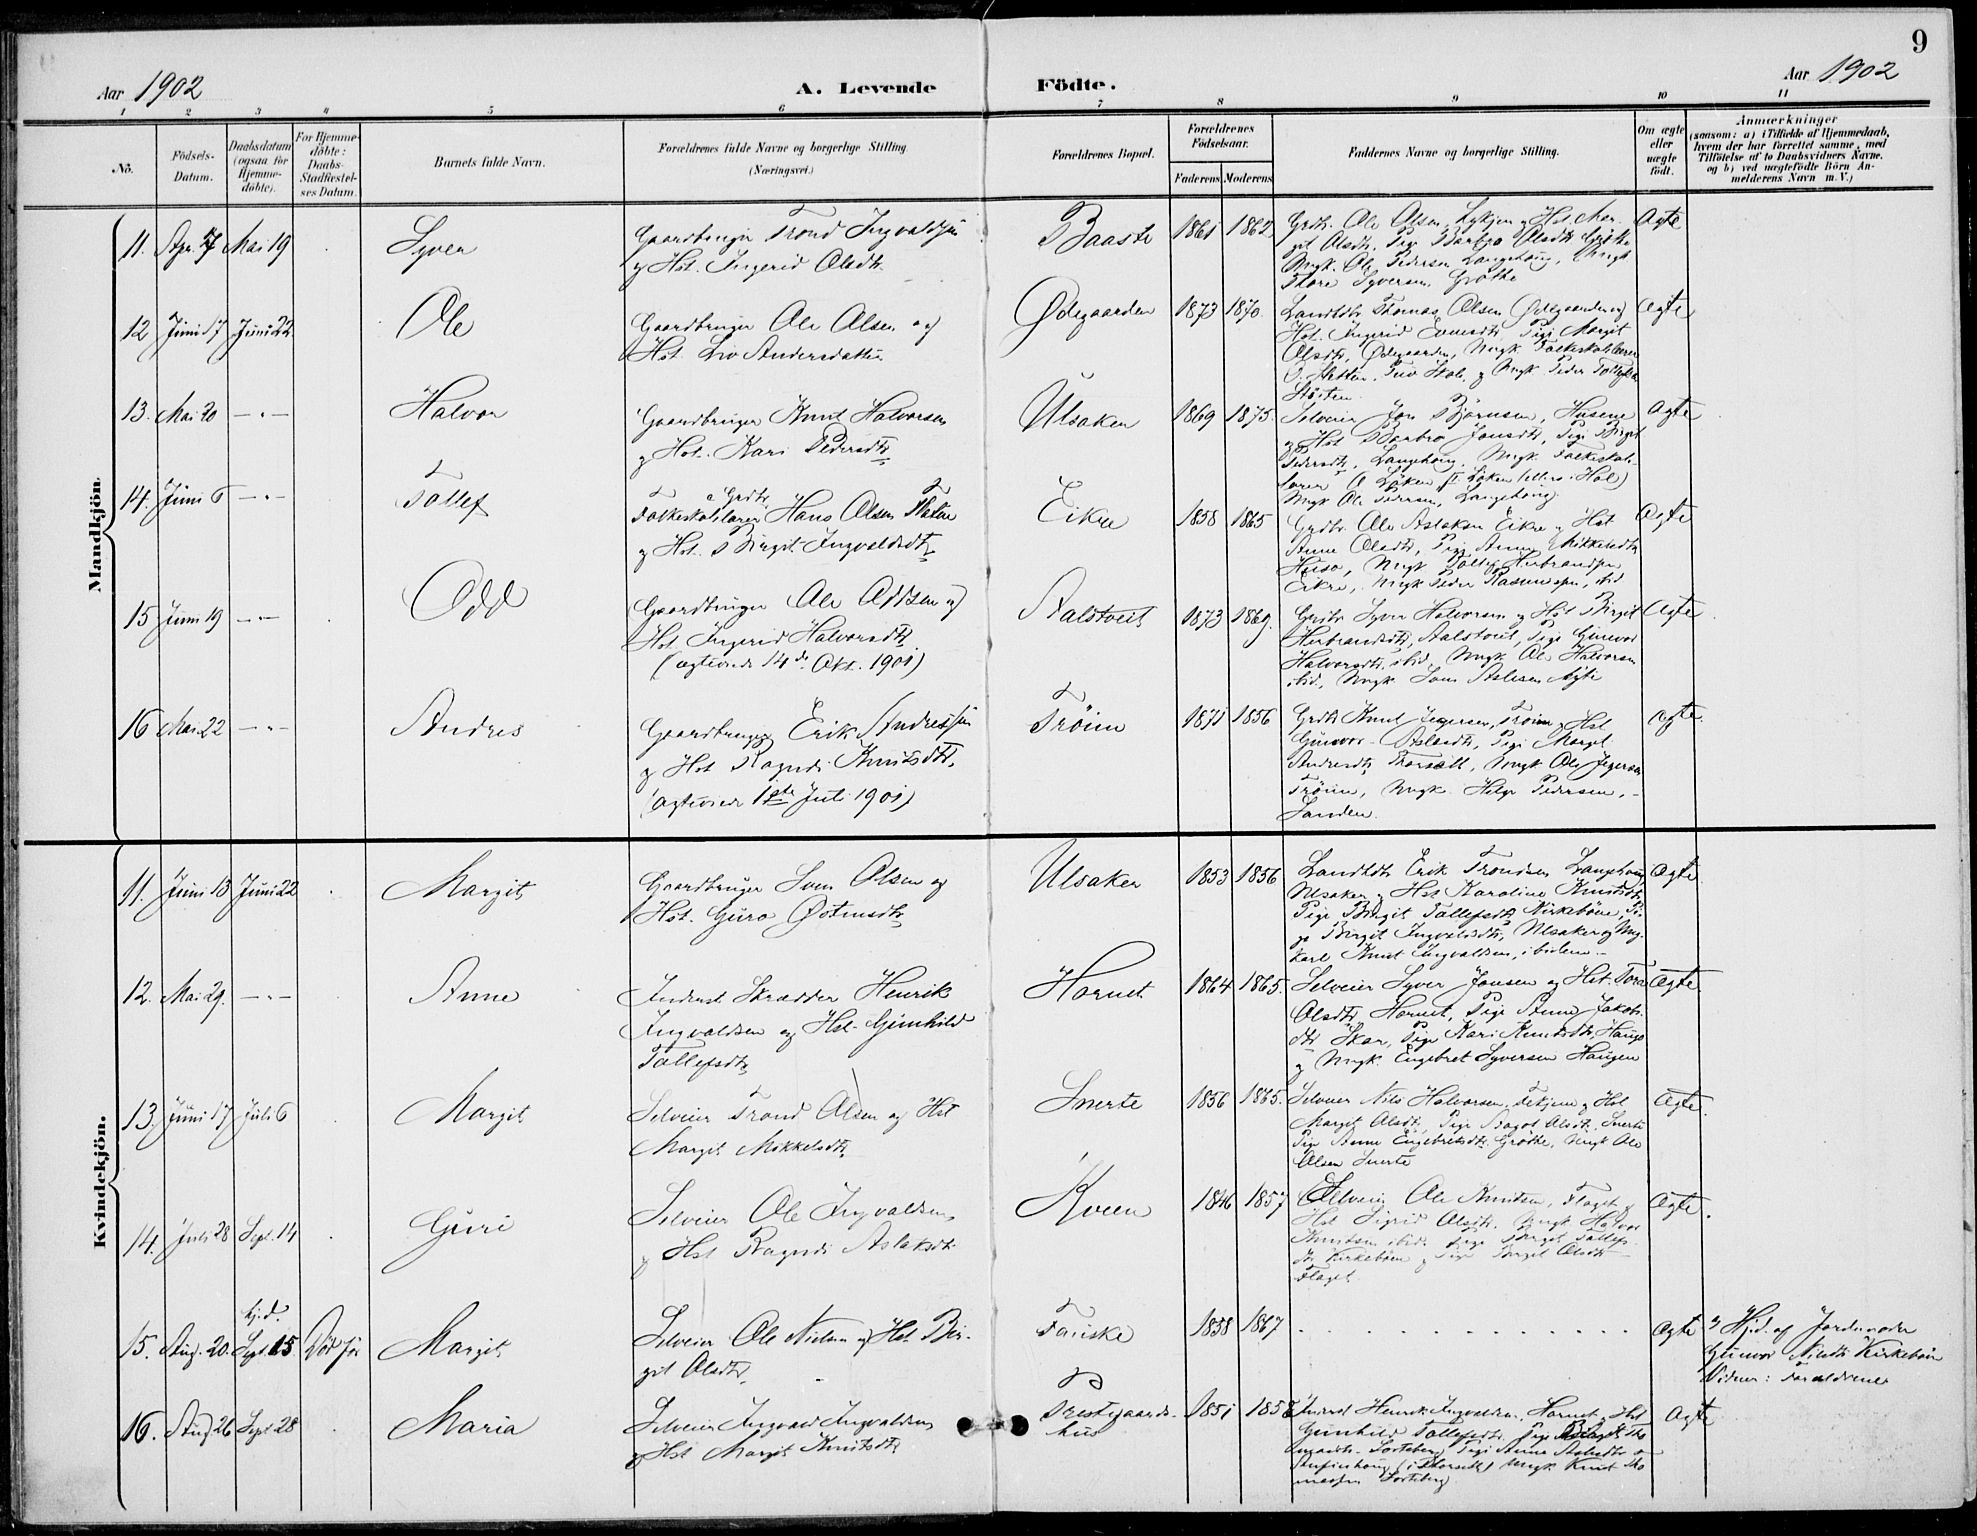 9
Aar 1902
A. Levende Födte.
Aar 1902
1 2 3 4 5 6 7 8 9 10 11
No.
Födsels-Datum.
Daabsdatum (ogsaa for Hjemme-döbte).
For Hjemme-döbte: Daabs-Stadfæstel-ses Datum.
Barnets fulde Navn.
Forældrenes fulde Navne og borgerlige Stilling
(Næringsvei.)
Forældrenes Bopæl.
Forældrenes Födselsaar.
Faderens Moderens
Faddernes Navne og borgerlige Stilling.
Om ægte eller uægte födt.
Anmærkninger
(saasom: a) i Tilfælde af Hjemmedaab, hvem der har forrettet samme, med Tilföielse af to Daabsvidners Navne. og b) ved uægtefödte Börn An-melderens Navn m. V.)
Mandkjön.
11. Apr. 7 Mai 19 Syver
Gaardbruger Trond Ingvaldsen
og Hst. Ingerid Olsdtr.
Baaste 1861 1862
Grdbr. Ole Olsen, Lykjen og Hst. Mar-
git Olsdtr. Pige Barbro Olsdtr Gröthe
Ungk. Ole Pedersen Langehaug, Ungk
Thore Syversen, Gröthe
Ægte
12 Juni 17 Juni 22 Ole
Gaardbruger Ole Olsen og
Hst. Liv Andersdatter
Ødegaarden 1873 1870
Landhdlr Thomas Olsen Ødegaarden og
Hst. Ingerid Pige Margit
Olsdtr, Ødegaarden, Ungk. Folkeskolelærer
Ungk Peder
Ægte
13. Mai 20 — " — Halvor
Gaardbruger Knut Halvorsen
og Hst. Kari Pedersdtr
Ulsaken 1869 1875.
Selveier Jon Björnsen, Husene
og Hst Barbro Jonsdtr, Pige Birgit
Pedersdtr, Langehaug, Ungk. Folkeskole-
lærer O Löken Hol)
Ungk Ole Pedersen, Langehaug
Ægte
14. Juni 6 — " — Tollef
Folkeskolelærer og Grdbr. Hans Olsen
og Hst. Birgit Ingvaldsdtr
Eikre 1858 1865
Grdbr. Ole Aslaksen Eikre og Hst
Anne Olsdtr, Pige Anne Mikkelsdtr
Huso, Ungk Tollef Herbrandsen
Eikre, Ungk Peder Rasmussen, ibid
Ægte
15 Juni 19 — " — Odd
Gaardbruger Ole Oddsen og
Hst. Ingerid Halvorsdtr
(ægteviede 14de Okt. 1901)
Aalstveit 1873 1869.
Grdbr Syver Halvorsen og Hst Birgit
Herbrandsdtr, Aalstveit, Pige Gunvor
Halvorsdtr, ibid, Ungk Ole Halvorsen
ibid., Ungk. Aslesen
Ægte
16 Mai 22 — " — Andres
Gaardbruger Erik Andressen
og Hst Ragndi Knutsdtr,
(ægteviede 1ste Juli 1901)
Tröim 1871 1856
Grdbr Knut Jegersen, Tröim og Hst
Gunvor Aslesdtr, Pige Margit
Andresdtr, Ungk Ole Jegersen
Tröim, Ungk Helge Pedersen,
Sanden.
Ægte.
Kvindekjön.
11. Juni 13 Juni 22 Margit
Gaardbruger Sven Olsen og
Hst. Guro Østensdtr
Ulsaker 1853 1856
Landhdlr Erik Trondsen Langehaug,
Ulsaker og Hst Karoline Knutsdtr,
Pige Birgit Tollefsdtr Kirkeböen, Pi-
ge Birgit Ingvaldsdtr, Ulsaker og Ung-
karl Knut Ingvaldsen, ibidem
Ægte
12. Mai 29. — " — Anne
Inderst Skrædder Henrik
Ingvaldsen og Hst. Gunhild
Tollefsdtr
Hornet 1864 1865.
Selveier Syver Jonsen og Hst. Tora
Olsdtr Hornet, Pige Anne Jakobs-
dtr Skar, Pige Kari Knutsdtr, Hauge
og Ungk. Engebret Syversen Haugen
Ægte.
13. Juni 17 Juli 6 Margit
Selveier Trond Olsen og Hst
Margit Mikkelsdtr
Snerte 1856 1865.
Selveier Nils Halvorsen og Hst
Margit Olsdtr, Pige Ragot Olsdtr Snerte
Pige Anne Engebretsdtr Gröthe, Ungk Ole
Olsen Snerte
Ægte.
14. Juli 28 Sept. 14 Guri
Selveier Ole Ingvaldsen
og Hst Ragndi Aslaksdtr
Kveen 1846 1857
Selveier Ole Knutsen, Flaget og
Hst Sigrid Olsdtr. Ungk Halvor
Knutsen ibid. Pige Birgit Tollefs-
dtr Kirkeböen og Pige Birgit Olsdtr
Flaget
Ægte.
15. Aug. 20. hj.d. Sept. 15 Död för Margit
Selveier Ole Nielsen og Hst. Bir-
git Olsdtr,
Fauske 1858 1867
Ægte
Hj.d. af Jordemoder
Gunvor Nilsdtr Kirkeböen
Vidner: Forældrene
16. Aug 26 Sept 28 Maria
Selveier Ingvald Ingvaldsen
og Hst Margit Knutsdtr
Prestegaards-
hus
1851 1858
Inderst Henrik Ingvaldsen, Hornet og Hst
Gunhild Tollefsdtr. Pige Birgit Tho-
masdtr. Sorteberg, Pige Anne Aslesdtr
Ungk Knut Tho-
massen Sorteberg
Ægte